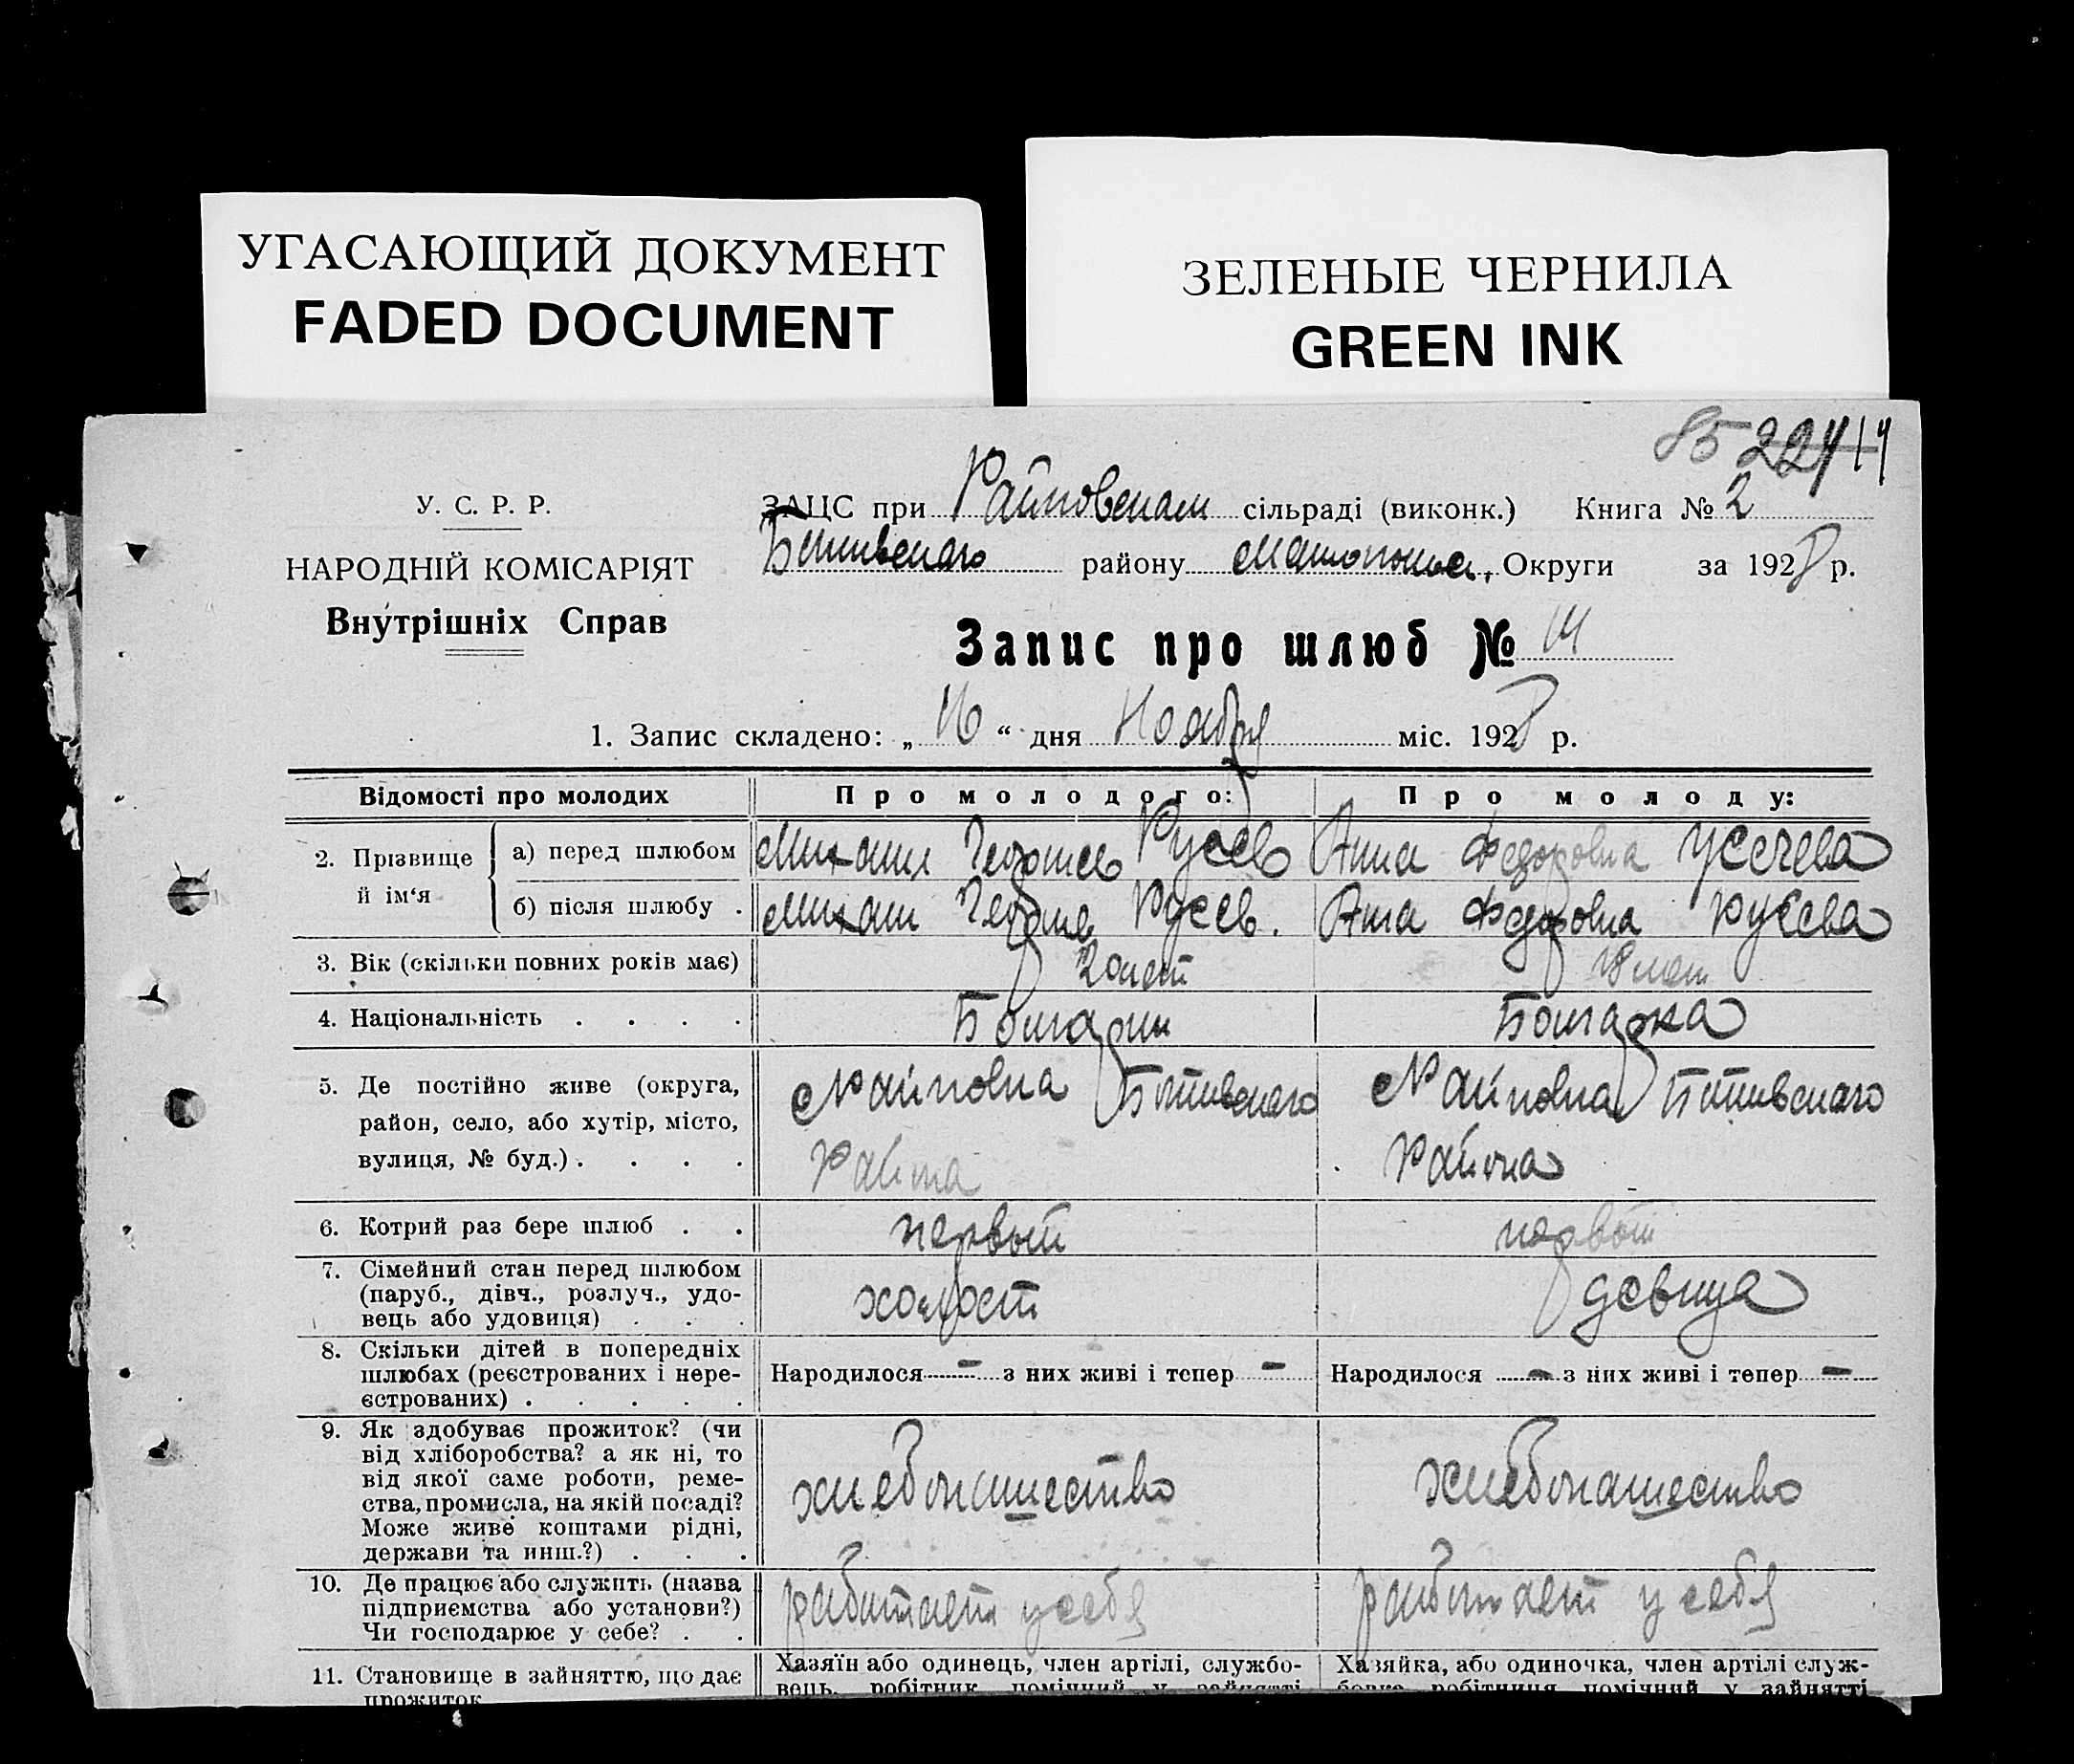 УГАСАЮЩИЙ ДОКУМЕНТ
FADED DOCUMENT
ЗЕЛЕНЫЕ ЧЕРНИЛА
GREEN INK
85 224 14
У. С. Р. Р.
НАРОДНІЙ КОМІСАРІЯТ
Внутрішніх Справ
ЗАЦС при Райновском сільраді (виконк.) Книга № 2
району Округи за 1928 р.
Запис про шлюб № 14
1. Запис складено: „ 16 “ дня Ноября міс. 1928 р.
Відомості про молодих Про молодого: Про молоду:
2. Прізвище й ім‘я
а) перед шлюбом Михаил Георгиев Русев Анна Федоровна Усечева
б) після шлюбу . Михаил Георгиев Русев. Анна Федоровна Русева
3. Вік (скільки повних років має) 20 лет 18 лет
4. Національність . . . . Болгарин Болгарка
5. Де постійно живе (округа,
район, село, або хутір, місто,
вулиця, № буд.) . . . .
с Райновка Ботивского
Района
с Райновка Ботивского
Района
6. Котрий раз бере шлюб . . первый первый
7. Сімейний стан перед шлюбом
(паруб., дівч., розлуч., удо-
вець або удовиця) . . .
холост девица
8. Скільки дітей в попередніх
шлюбах (реєстрованих і нере-
єстрованих) . . . . .
Народилося - з них живі і тепер -
Народилося - з них живі і тепер -
9. Як здобуває прожиток? (чи
від хліборобства? а як ні, то
від якої саме роботи, реме-
ства, промисла, на якій посаді?
Може живе коштами рідні,
держави та инш.?) . . .
хлебопашество хлебопашество
10. Де працює або служить (назва
підприємства або установи?)
Чи господарює у себе? . .
работает у себя работает у себя
11. Становище в зайняттю, що дає
прожиток
Хазяїн або одинець, член артілі, службо-
вець, робітник, помічний у зайнятті
Хазяйка, або одиночка, член артілі служ-
бовка, робітниця, помічний у зайнятті